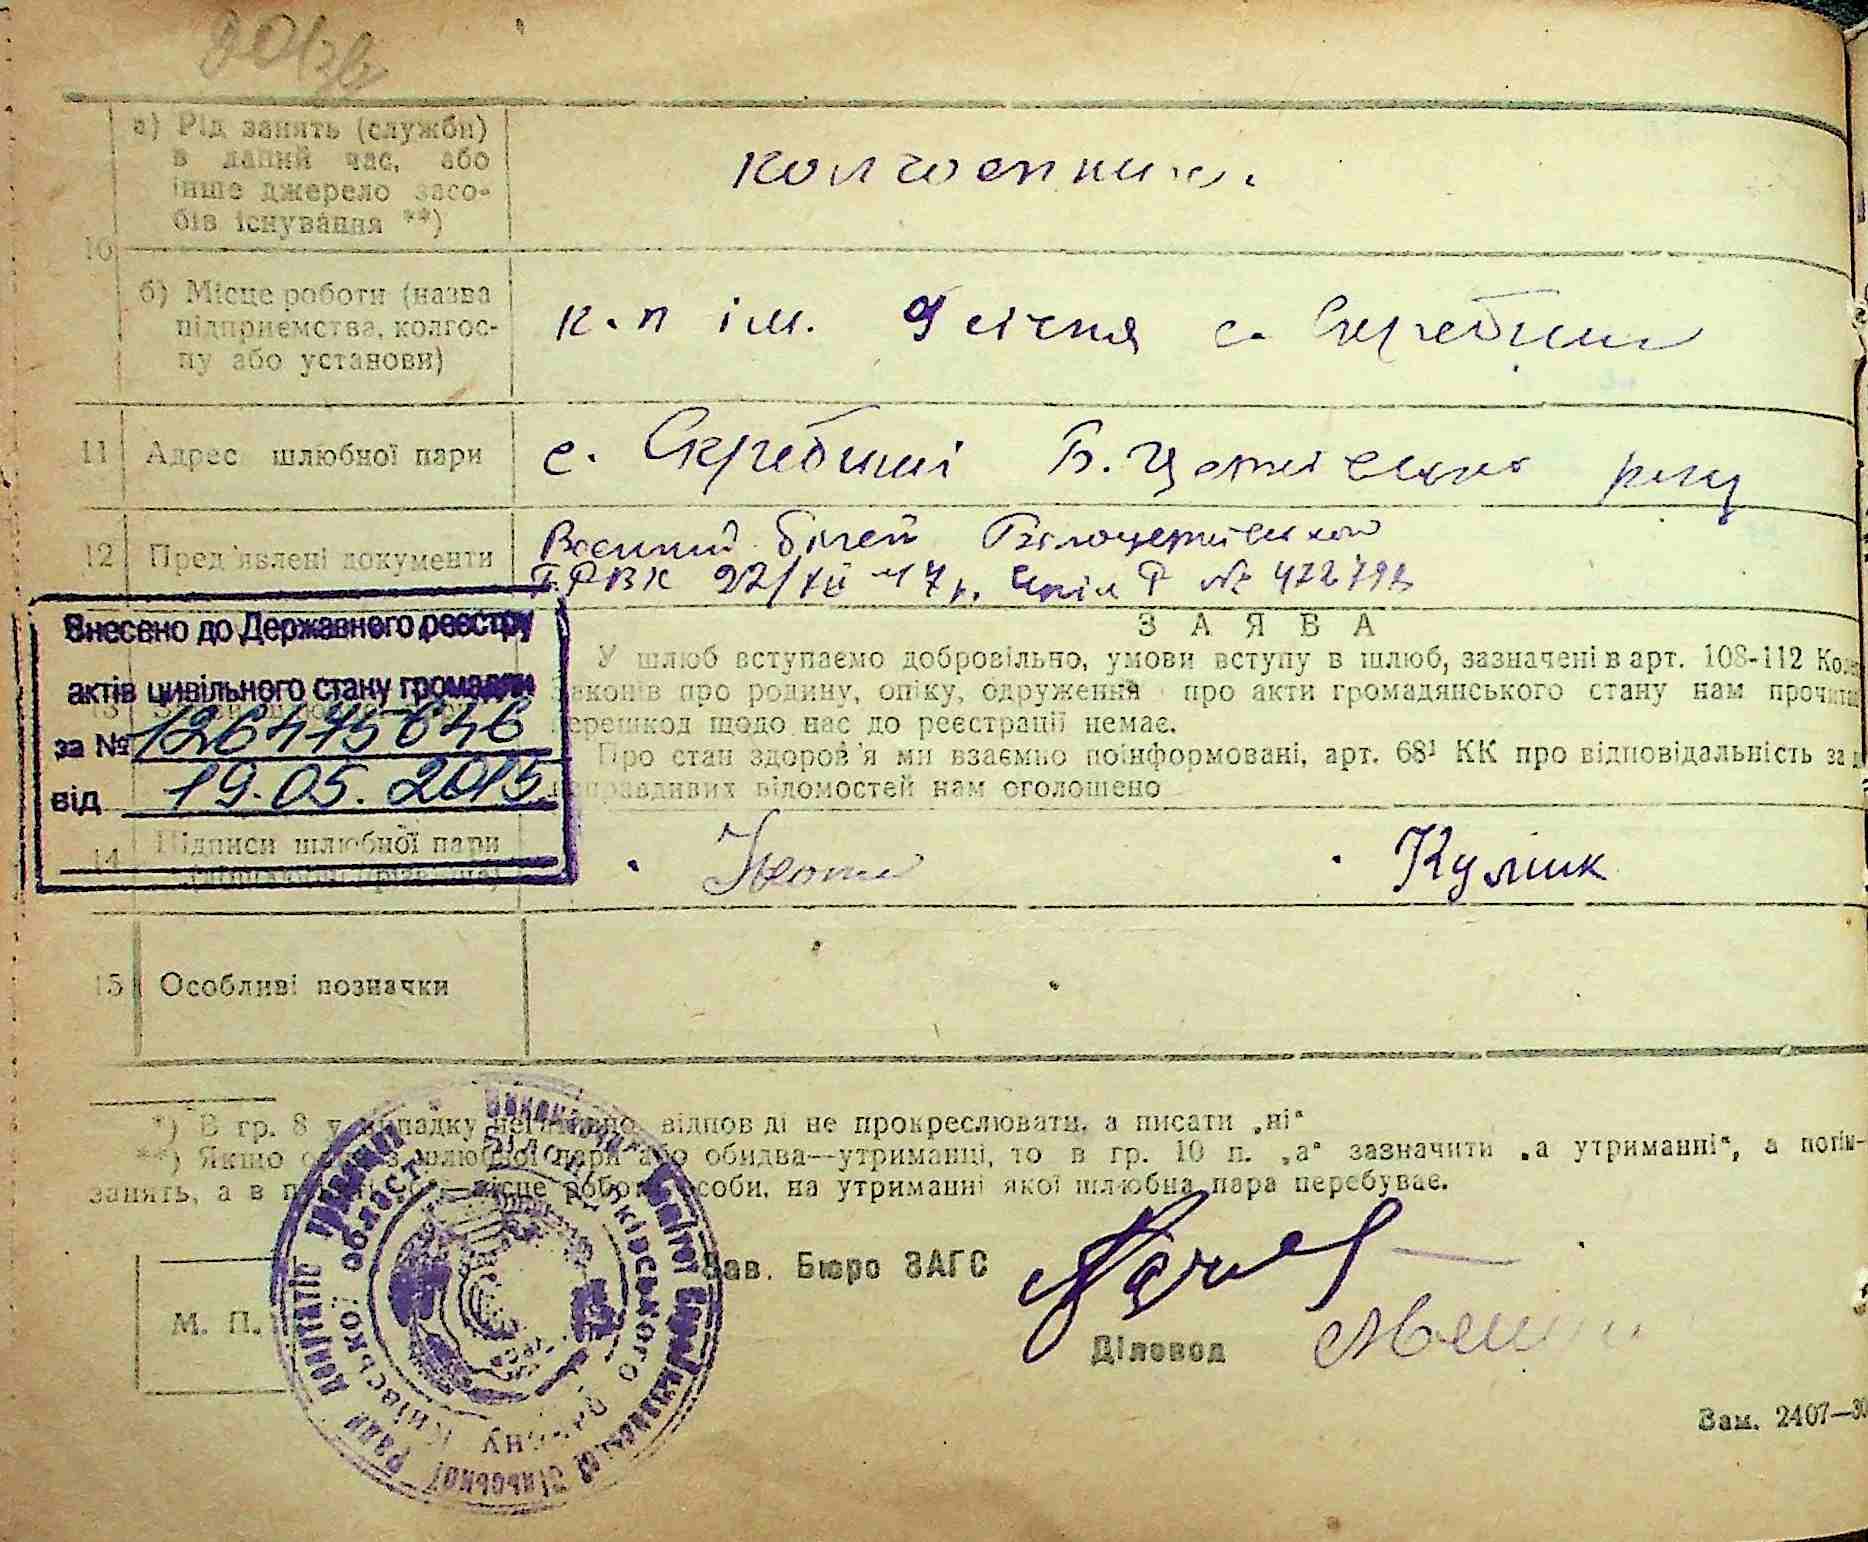 10
а) Рід занять (служби)
в даний час, або
інше джерело засо-
бів існування **)
колгоспники.
б) Місце роботи (назва
підприємства, колгос-
пу або установи)
к-п ім. 9 січня с. Скребиші
11 Адрес шлюбної пари
с. Скребиші Б. Церківського
12 Пред'явлені документи
Воєнний білет Білоцерківським
РВК 22/XII 47 р. Серія № 
Внесено до Державного реєстру
актів цивільного стану громадян
за №
від 19.05.2015
ЗАЯВА
У шлюб вступаємо добровільно, умови вступу в шлюб, зазначені в арт. 108-112
законів про родину, опіку, одруження про акти громадянського стану нам
перешкод щодо нас до реєстрації немає.
Про стан здоров'я ми взаємно поінформовані, арт. 68¹ КК про відповідальність за
неправдивих відомостей нам оголошено
14 Підписи шлюбної пари
Кулик
15 Особливі позначки
*) В гр. 8 у випадку відповіді не прокреслювати, а писати „ні“
**) Якщо шлюбної пари або обидва—утриманці, то в гр. 10 п. „а“ зазначити „а утриманні“, а
занять, а в місце роботи особи, на утриманні якої шлюбна пара перебуває.
Зав. Бюро ЗАГС
М. П.
Діловод
Зам. 2407—